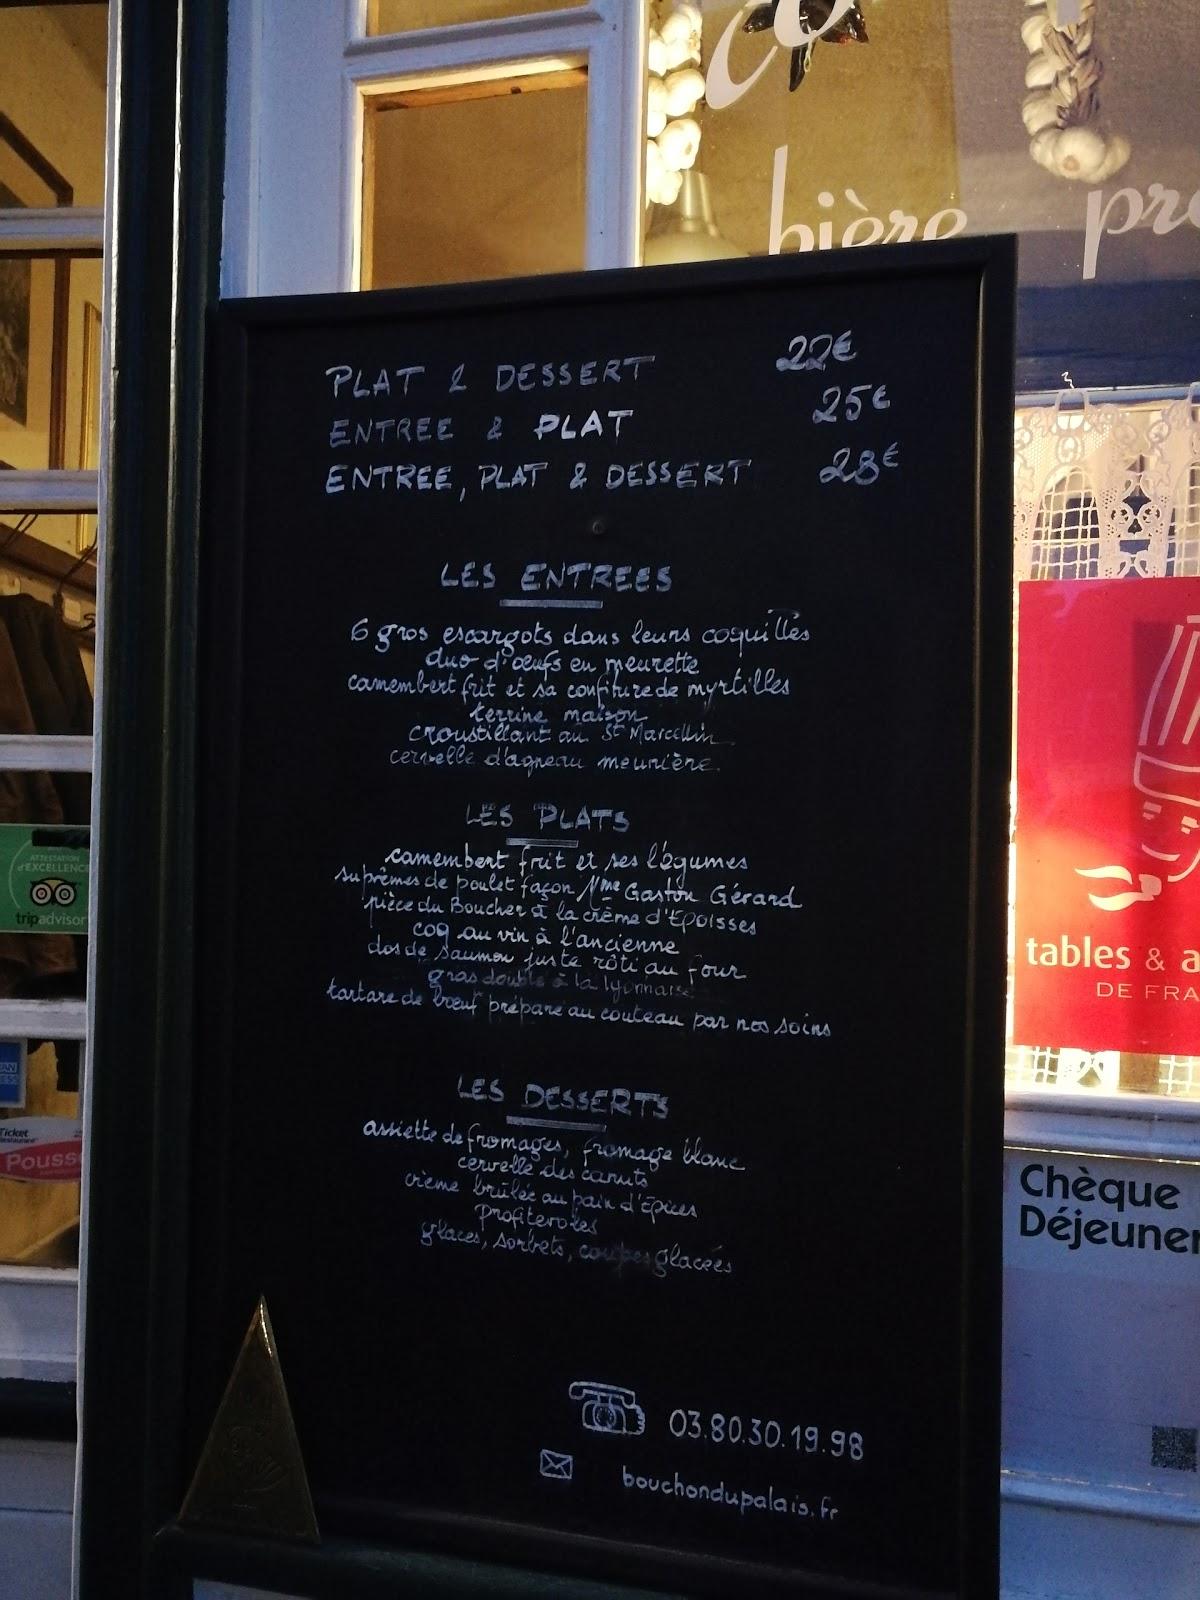 bière
PLAT & DESSERT 22€
ENTREE & PLAT 25€
ENTREE, PLAT & DESSERT 28€
LES ENTREES
6 gros escargots dans leurs coquilles
duo d'œufs en meurette
camembert frit et sa confiture de myrtilles
terrine maison
croustillant au St Marcellin
cervelle d'agneau meunière
LES PLATS
camembert frit et ses légumes
suprêmes de poulet façon Mme Gaston Gérard
pièce du Boucher à la crème d'Epoisses
coq au vin à l'ancienne
dos de saumon juste rôti au four
gras double à la lyonnaise
tartare de bœuf préparé au couteau par nos soins
LES DESSERTS
assiette de fromages, fromage blanc
cervelle des canuts
crème brûlée au pain d'épices
profiteroles
glaces, sorbets, coupes glacées
03.80.30.19.98
bouchondupalais.fr
ATTESTATION
d'EXCELLENCE
tripadvisor
Ticket
Restaurant
Pouss
tables & a
DE FRA
Chèque
Déjeuner